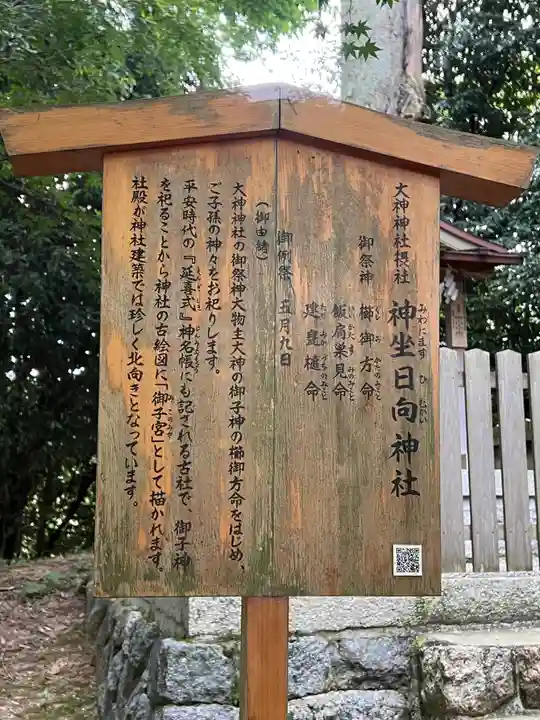 大神神社摂社
神坐日向神社
みわにます ひ むかい
御祭神 櫛御方命
飯肩巣見命
建甕槌命
御例祭 五月九日
(御由緒)
大神神社の御祭神大物主大神の御子神の櫛御方命をはじめ、
ご子孫の神々をお祀りします。
平安時代の『延喜式』神名帳にも記される古社で、御子神
を祀ることから神社の古絵図に「御子宮」として描かれます。
社殿が神社建築では珍しく北向きとなっています。